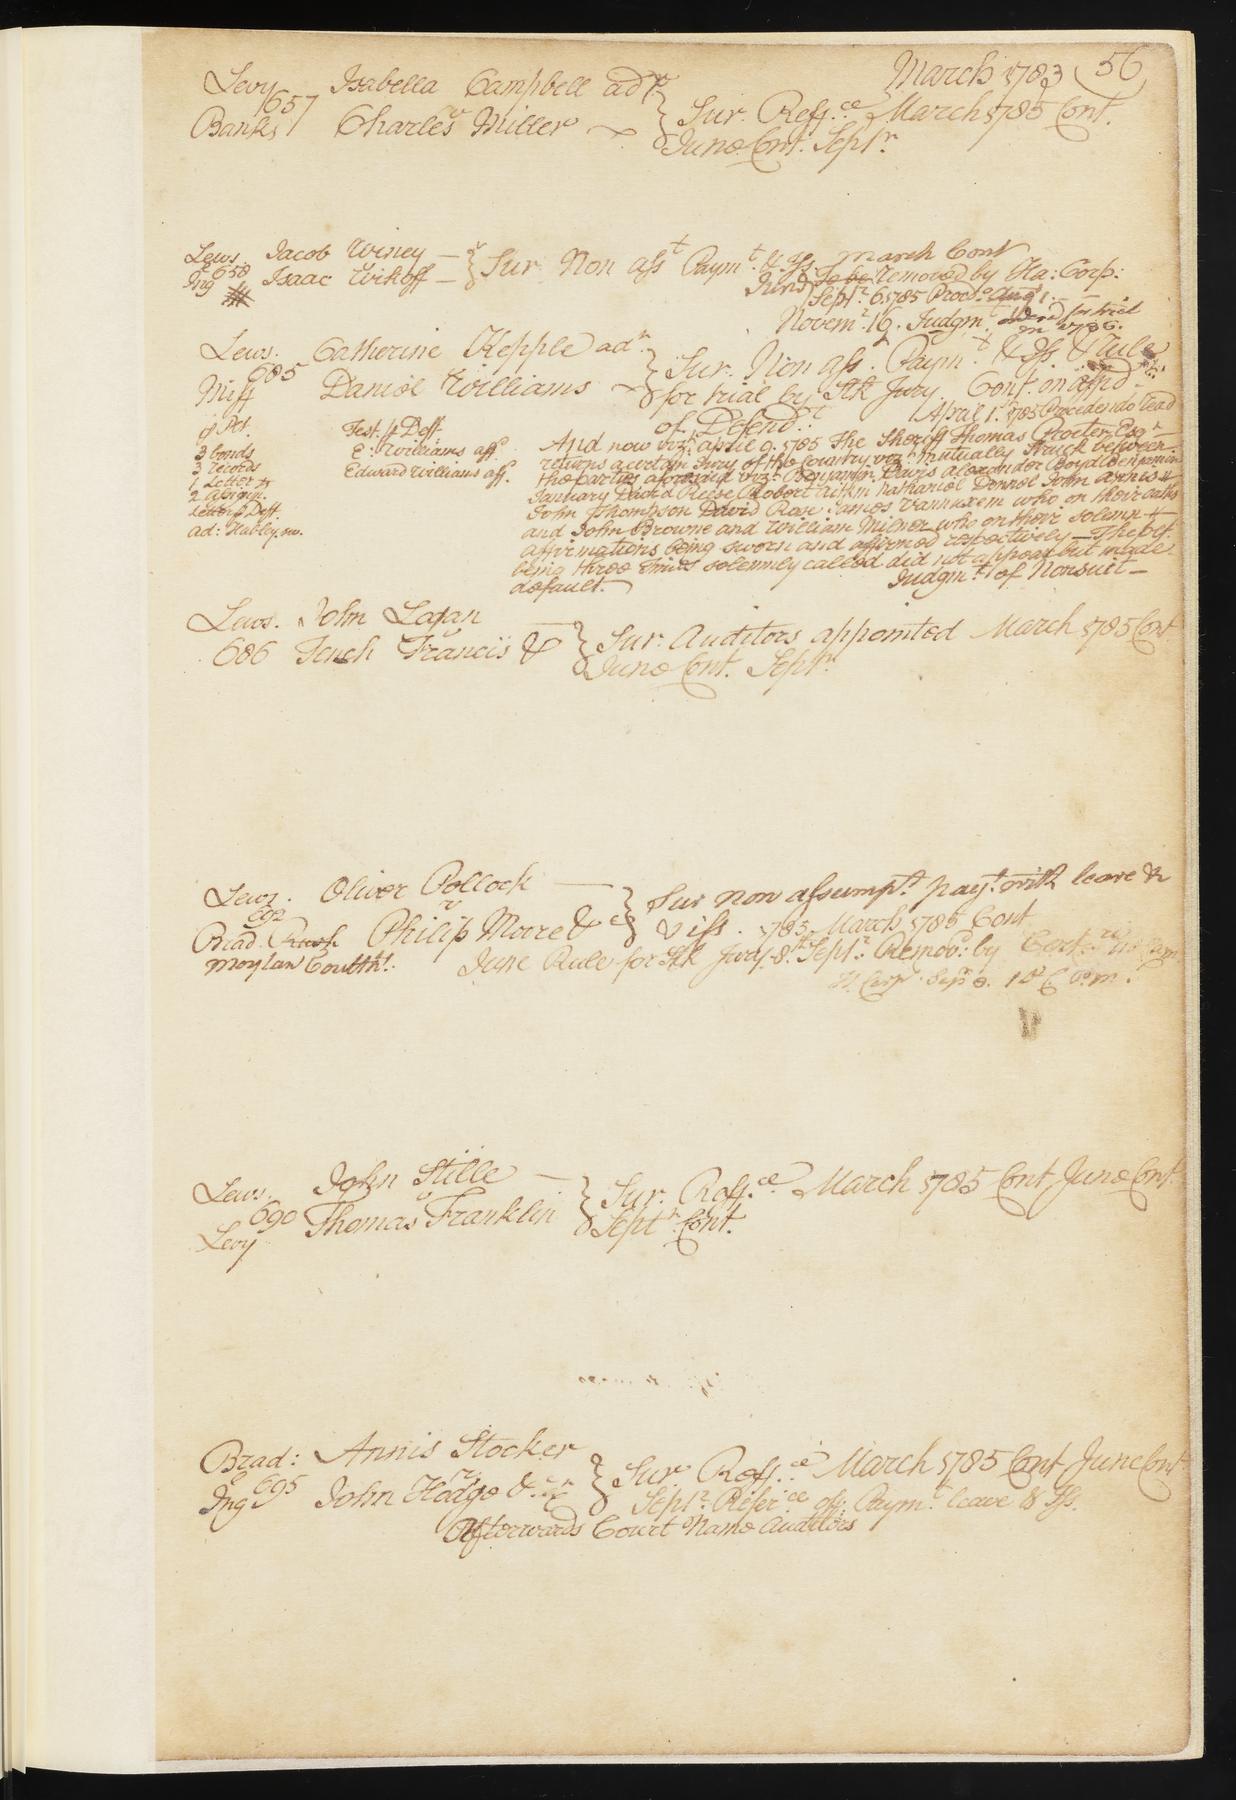 March 1783 56
Levy Isabella Campbell adx
657 v
Banks Charles Miller
Sur. Reff.ce March 1785 Cont.
June Cont. Sept.r
Lews. Jacob Winey — v
658
Ing Isaac Wikoff —
Sur Non asst Paymt. & Iss. March Cont
June to be Removed by Ha: Corp:
Sept.r 6. 1785 Proced.o Aug 1.
Novem.r 16. Judgm.t
in 1786.
Lews. Catherine Kepple adx.
685
Miff Daniel Williams
Sur. Non ass. Paym.t & Iss. & Rule
for trial by Stk Jury Cont. on affid.
of Defend.t April 1st 1785 Procedendo read
Test. p Deft.
3 bonds E. Williams aff.
3 records Edward Williams aff.
1 Letter
2 assignm.
Letter p Deft.
ad: Hubley sw.
And now viz.t april 9. 1785 The Sheriff Thomas Procter Esq.r
returns a certain Jury of the Country viz.t mutually Struck between
the parties aforesaid viz.t Benjamin Davis alexander Boyd Benjamin
January David Reese Robert aitkin Nathaniel Donnel John annis
John Thompson David Rose James Vannuxem who on their oaths
and John Browne and William Milnor who on their solemn
affirmations being sworn and affirmed respectively — The plt.
being three times solemnly called did not appear but made
default. Judgm.t of Nonsuit —
Lews. John Lagan
v
686 Tench Francis &
Sur. Auditors appointed March 1785 Cont
June Cont. Sept.r
Lews. Oliver Pollock
692 v
Brad. Rush Philip Moore &
Moylan Coultht.
Sur non assumpt. payt. with leave &
& iss. 1785 March 1785 Cont
June Rule for Stk Jury. 8th Sept.r Remov.d by
H. Corp. Sepr 8.
Lews. John Stille —
690 v
Levy Thomas Franklin
Sur. Reff.ce March 1785 Cont June Cont.
Sept.r Cont.
Brad: Annis Stocker
& 695 v
Ing John Hodge &
Sur Reff.ce March 1785 Cont June Cont
Sept.r Refer.ce off. Paym.t leave & Iss.
Afterwards Court Name Auditors